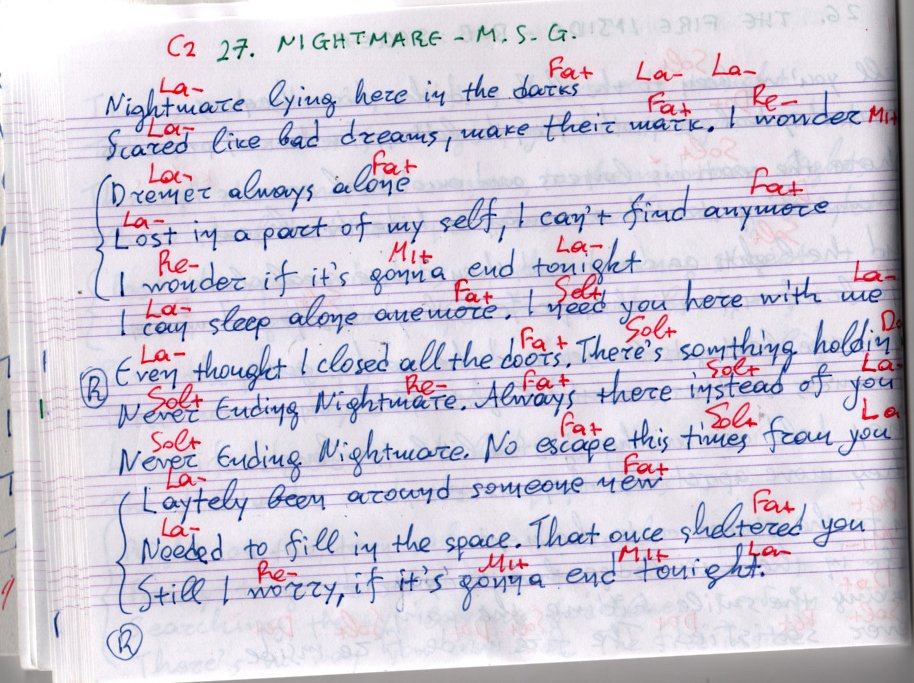 C2 27. NIGHTMARE - M.S.G.
La- Fa+ La- La-
Nightmare lying here in the darks
La- Fa+ Re- Mi+
Scared like bad dreams, make their mark. I wonder
La- Fa+
Dremer always alone
La- Fa+
Lost in a part of my self, I can't find anymore
Re- Mi+ La-
I wonder if it's gonna end tonight
La- Fa+ Sol+ La-
I can sleep alone anemore. I need you here with me
La- Fa+ Sol+ Do
R Even thought I closed all the doors. There's somthing holdin
Sol+ Re- Fa+ Sol+ La-
Never Ending Nightmare. Always there instead of you
Sol+ Fa+ Sol+ La
Never Ending Nightmare. No escape this times from you
La- Fa+
Laytely been around someone new
La- Fa+
Needed to fill in the space. That once sheltered you
Re- Mi+ Mi+ La-
Still I worry, if it's gonna end tonight.
R